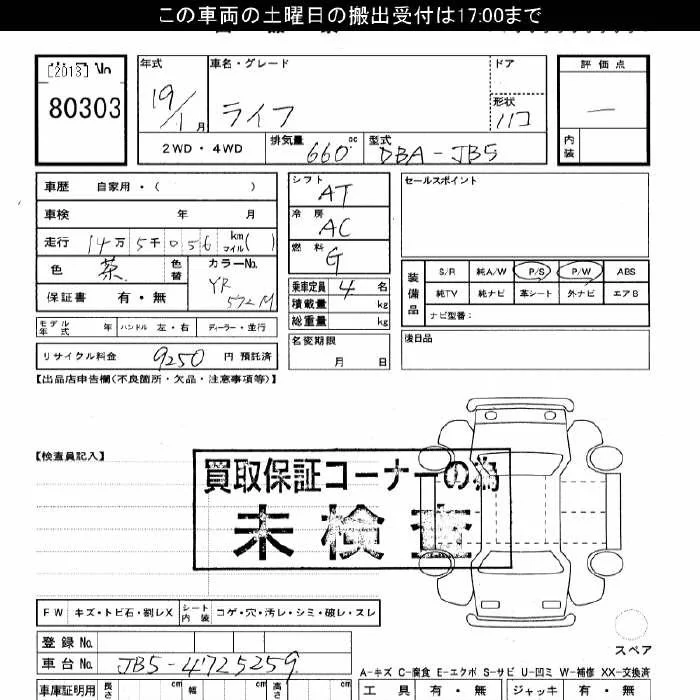 この車両の土曜日の搬出受付は17:00まで
[2013] No
80303
年式 車名・グレード ドア 評価点
19/1月 ライフ 形状 ハコ —
2WD・4WD 排気量 660cc 型式 DBA-JB5 内装
車歴 自家用・( )
車検 年 月
走行 14万5千056 km マイル( )
色 茶 色替 カラーNo. YR 572M
保証書 有・無
モデル年式 年 ハンドル 左・右 ディーラー・並行
リサイクル料金 9250 円 預託済
シフト AT
冷房 AC
燃料 G
乗車定員 4 名
積載量 kg
総重量 kg
名変期限
月 日
セールスポイント
装備品 S/R 純A/W P/S P/W ABS
純TV 純ナビ 革シート 外ナビ エアB
ナビ型番:
後日品
【出品店申告欄(不良箇所・欠品・注意事項等)】
【検査員記入】
買取保証コーナーの為
未検査
FW キズ・トビ石・割レX シート内装 コゲ・穴・汚レ・シミ・破レ・スレ
登録No.
車台No. JB5-4725259
スペア
A-キズ C-腐食 E-エクボ S-サビ U-凹ミ W-補修 XX-交換済
車庫証明用 長さ cm 幅 cm 高さ cm 工具 有・無 ジャッキ 有・無